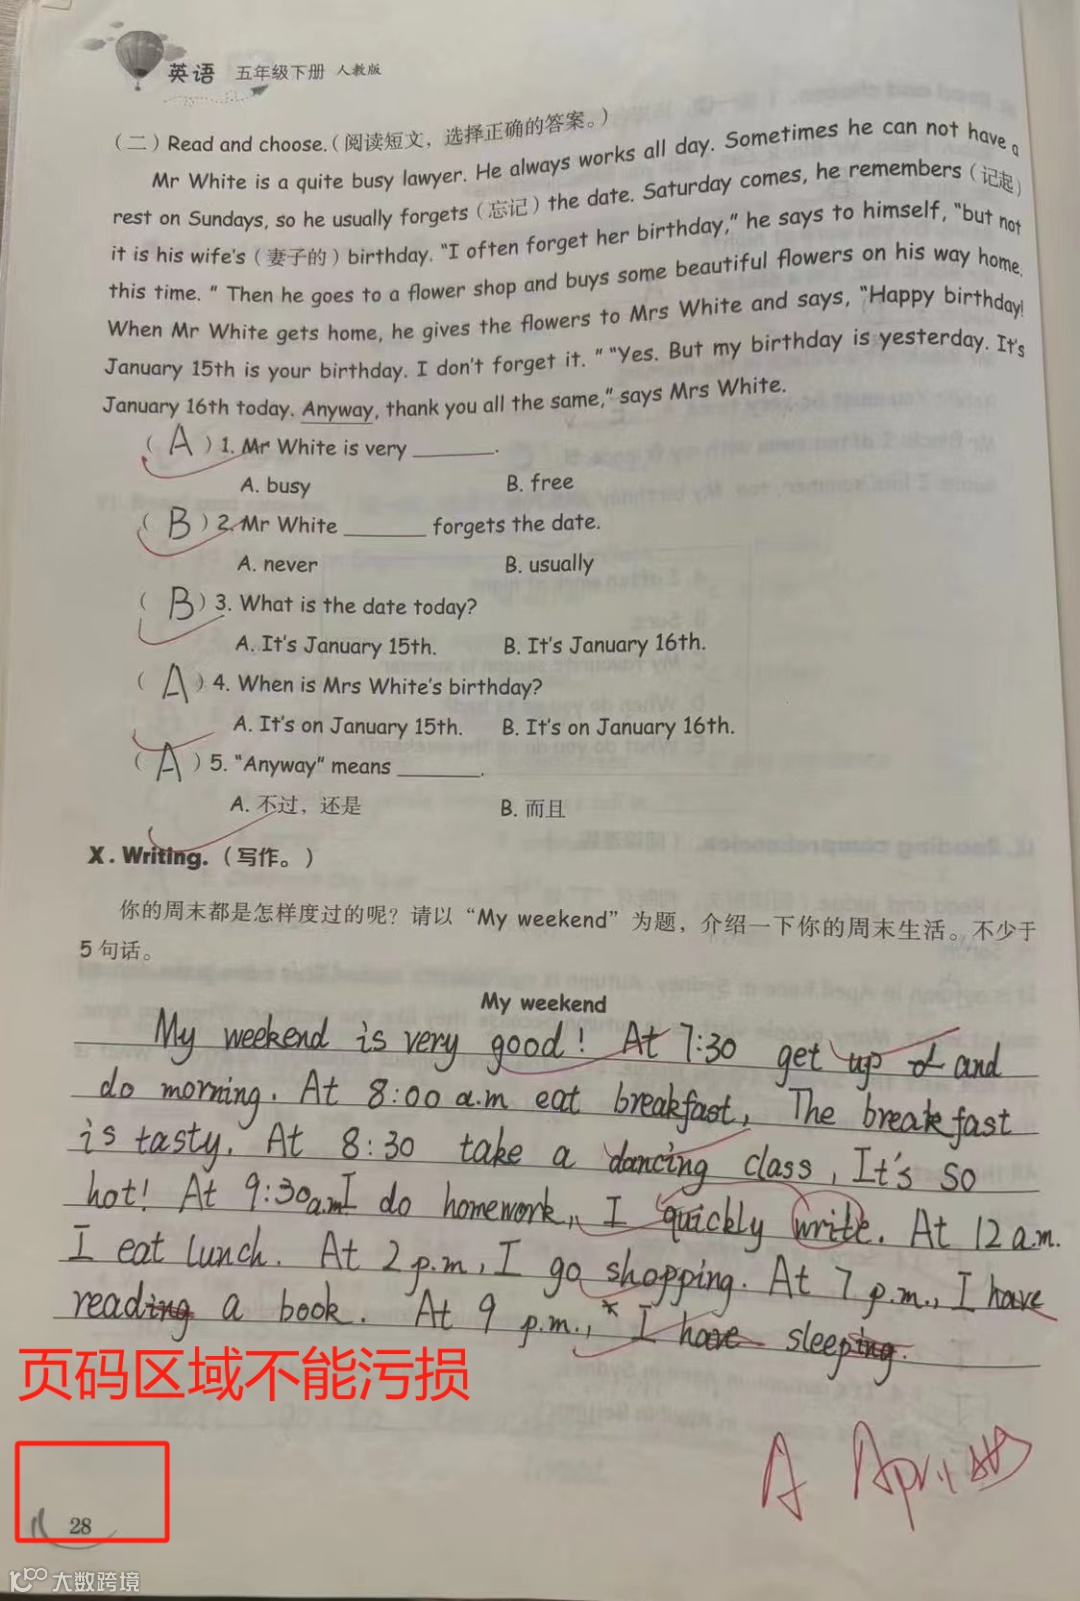 英语 五年级下册 人教版
(二) Read and choose.(阅读短文，选择正确的答案。)
Mr White is a quite busy lawyer. He always works all day. Sometimes he can not have a
rest on Sundays, so he usually forgets (忘记) the date. Saturday comes, he remembers (记起)
it is his wife's (妻子的) birthday. “I often forget her birthday,” he says to himself, “but not
this time. ” Then he goes to a flower shop and buys some beautiful flowers on his way home.
When Mr White gets home, he gives the flowers to Mrs White and says, “Happy birthday!
January 15th is your birthday. I don't forget it. ” “Yes. But my birthday is yesterday. It's
January 16th today. Anyway, thank you all the same,” says Mrs White.
( A ) 1. Mr White is very ______.
A. busy B. free
( B ) 2. Mr White ______ forgets the date.
A. never B. usually
( B ) 3. What is the date today?
A. It's January 15th. B. It's January 16th.
( A ) 4. When is Mrs White's birthday?
A. It's on January 15th. B. It's on January 16th.
( A ) 5. “Anyway” means ______.
A. 不过，还是 B. 而且
X. Writing.(写作。)
你的周末都是怎样度过的呢？请以“My weekend”为题，介绍一下你的周末生活。不少于
5句话。
My weekend
My weekend is very good! At 7:30 get up and
do morning. At 8:00 a.m eat breakfast, The breakfast
is tasty. At 8:30 take a dancing class, It's so
hot! At 9:30a.m I do homework, I quickly write. At 12 a.m.
I eat lunch. At 2 p.m, I go shopping. At 7 p.m., I have
reading a book. At 9 p.m., I have sleeping.
页码区域不能污损
A April
28
大数跨境